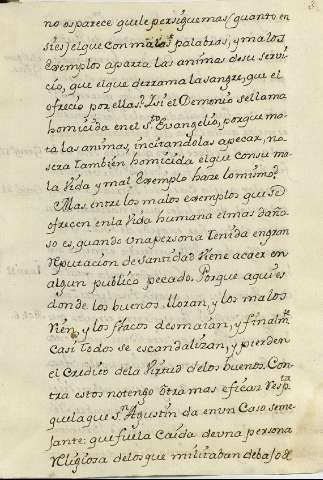 no os parece que le persigue mas (quanto en
si es) el que con malas palabras, y malos
exemplos aparta las animas de su servi
cio, que el que derrama la sangre, que el
ofrecio por ellas? Isi el Demonio se llama
homicida en el Sto Evangelio, porque ma
ta las animas, incitandolas a pecar, no
sera tambien homicida el que con su ma
la vida y mal exemplo haze lo mismo?
Mas entre los malos exemplos que se
ofrecen en la vida humana el mas daño
so es, quando una persona tenida en gran
reputacion de santidad viene a caer en
algun publico pecado. Porque aqui es
donde los buenos lloran, y los malos
rien, y los flacos desmaian, y finalmte
casi todos se escandalizan, y pierden
el credito de la virtud de los buenos. Con
tra estos no tengo otra mas eficaz respta
que la que Sn Agustin da en un caso seme
jante: que fue la caida de una persona
religiosa de los que militaban debajo de